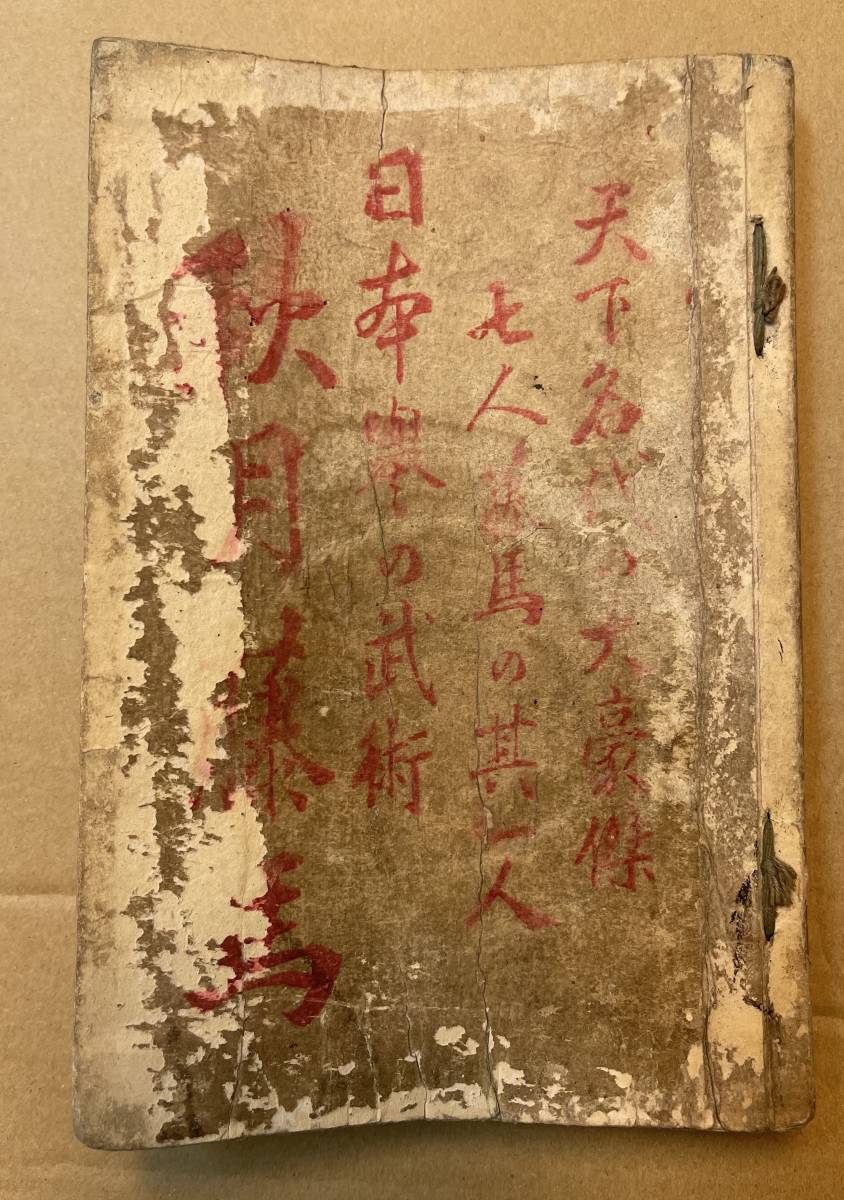 天下名代の大豪傑
七人藤馬の其一人
日本の武術
秋月藤馬